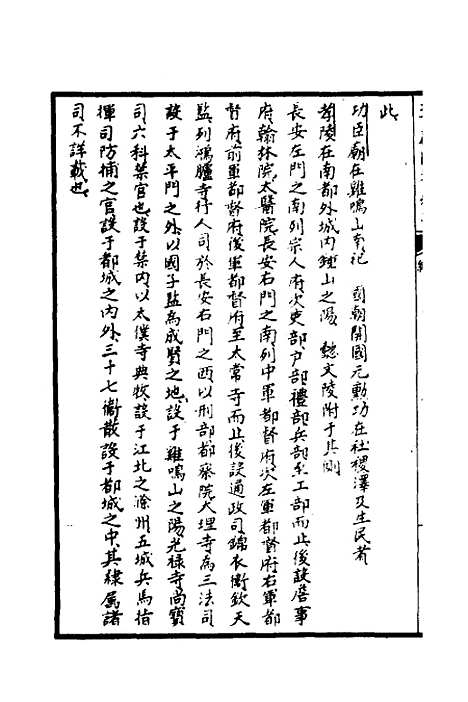 此
功臣廟在雞鳴山南祀　國朝開國元勳功在社稷澤及生民者
孝陵在南都外城内鍾山之陽　懿文陵附于其側
長安左門之南列宗人府次吏部户部禮部兵部至工部而止後設詹事
府翰林院太醫院長安右門之南列中軍都督府次左軍都督府右軍都
督府前軍都督府後軍都督府至太常寺而止後設通政司錦衣衞欽天
監列鴻臚寺行人司於長安右門之西以刑部都察院大理寺為三法司
設于太平門之外以國子監為成賢之地設于雞鳴山之陽光禄寺尚寶
司六科禁官也設于禁内以太僕寺典牧設于江北之滁州五城兵馬指
揮司防捕之官設于都城之内外三十七衞散設于都城之中其隸属諸
司不詳載也